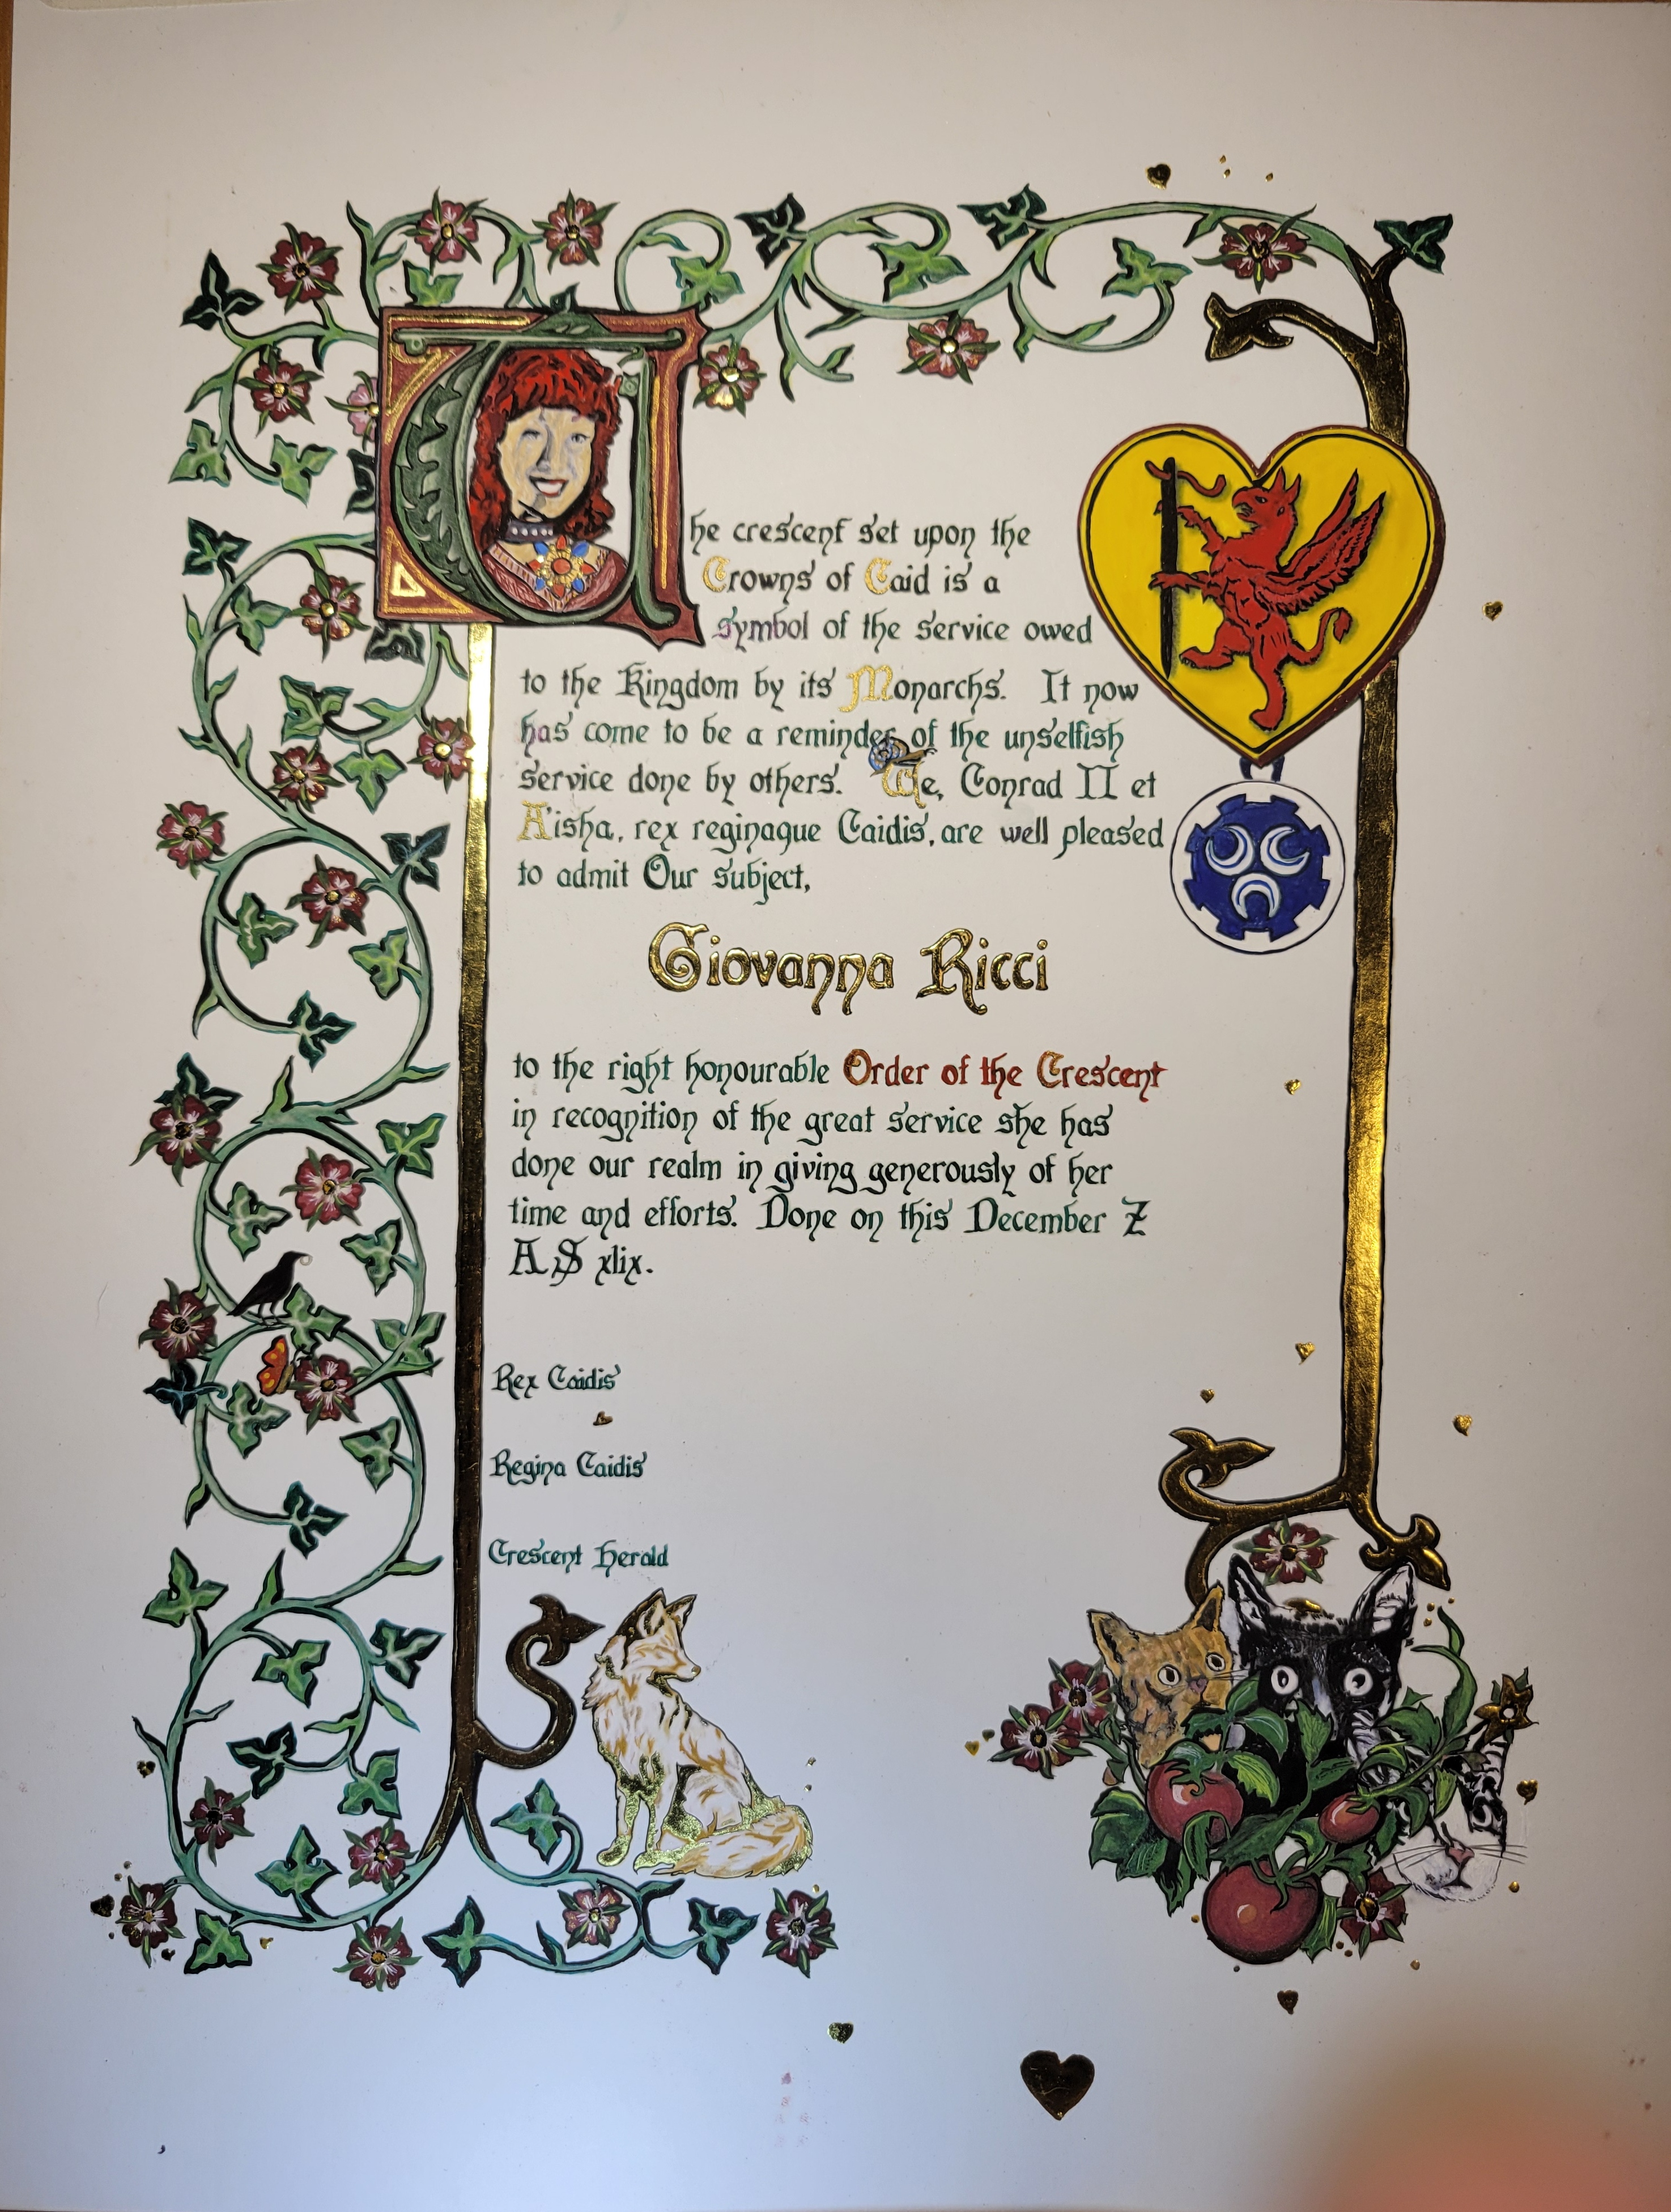 The crescent set upon the
Crowns of Caid is a
symbol of the service owed
to the Kingdom by its Monarchs. It now
has come to be a reminder of the unselfish
service done by others. We, Conrad II et
A'isha, rex reginaque Caidis, are well pleased
to admit Our subject,
Giovanna Ricci
to the right honourable Order of the Crescent
in recognition of the great service she has
done our realm in giving generously of her
time and efforts. Done on this December Z
A S xlix.
Rex Caidis
Regina Caidis
Crescent Herald